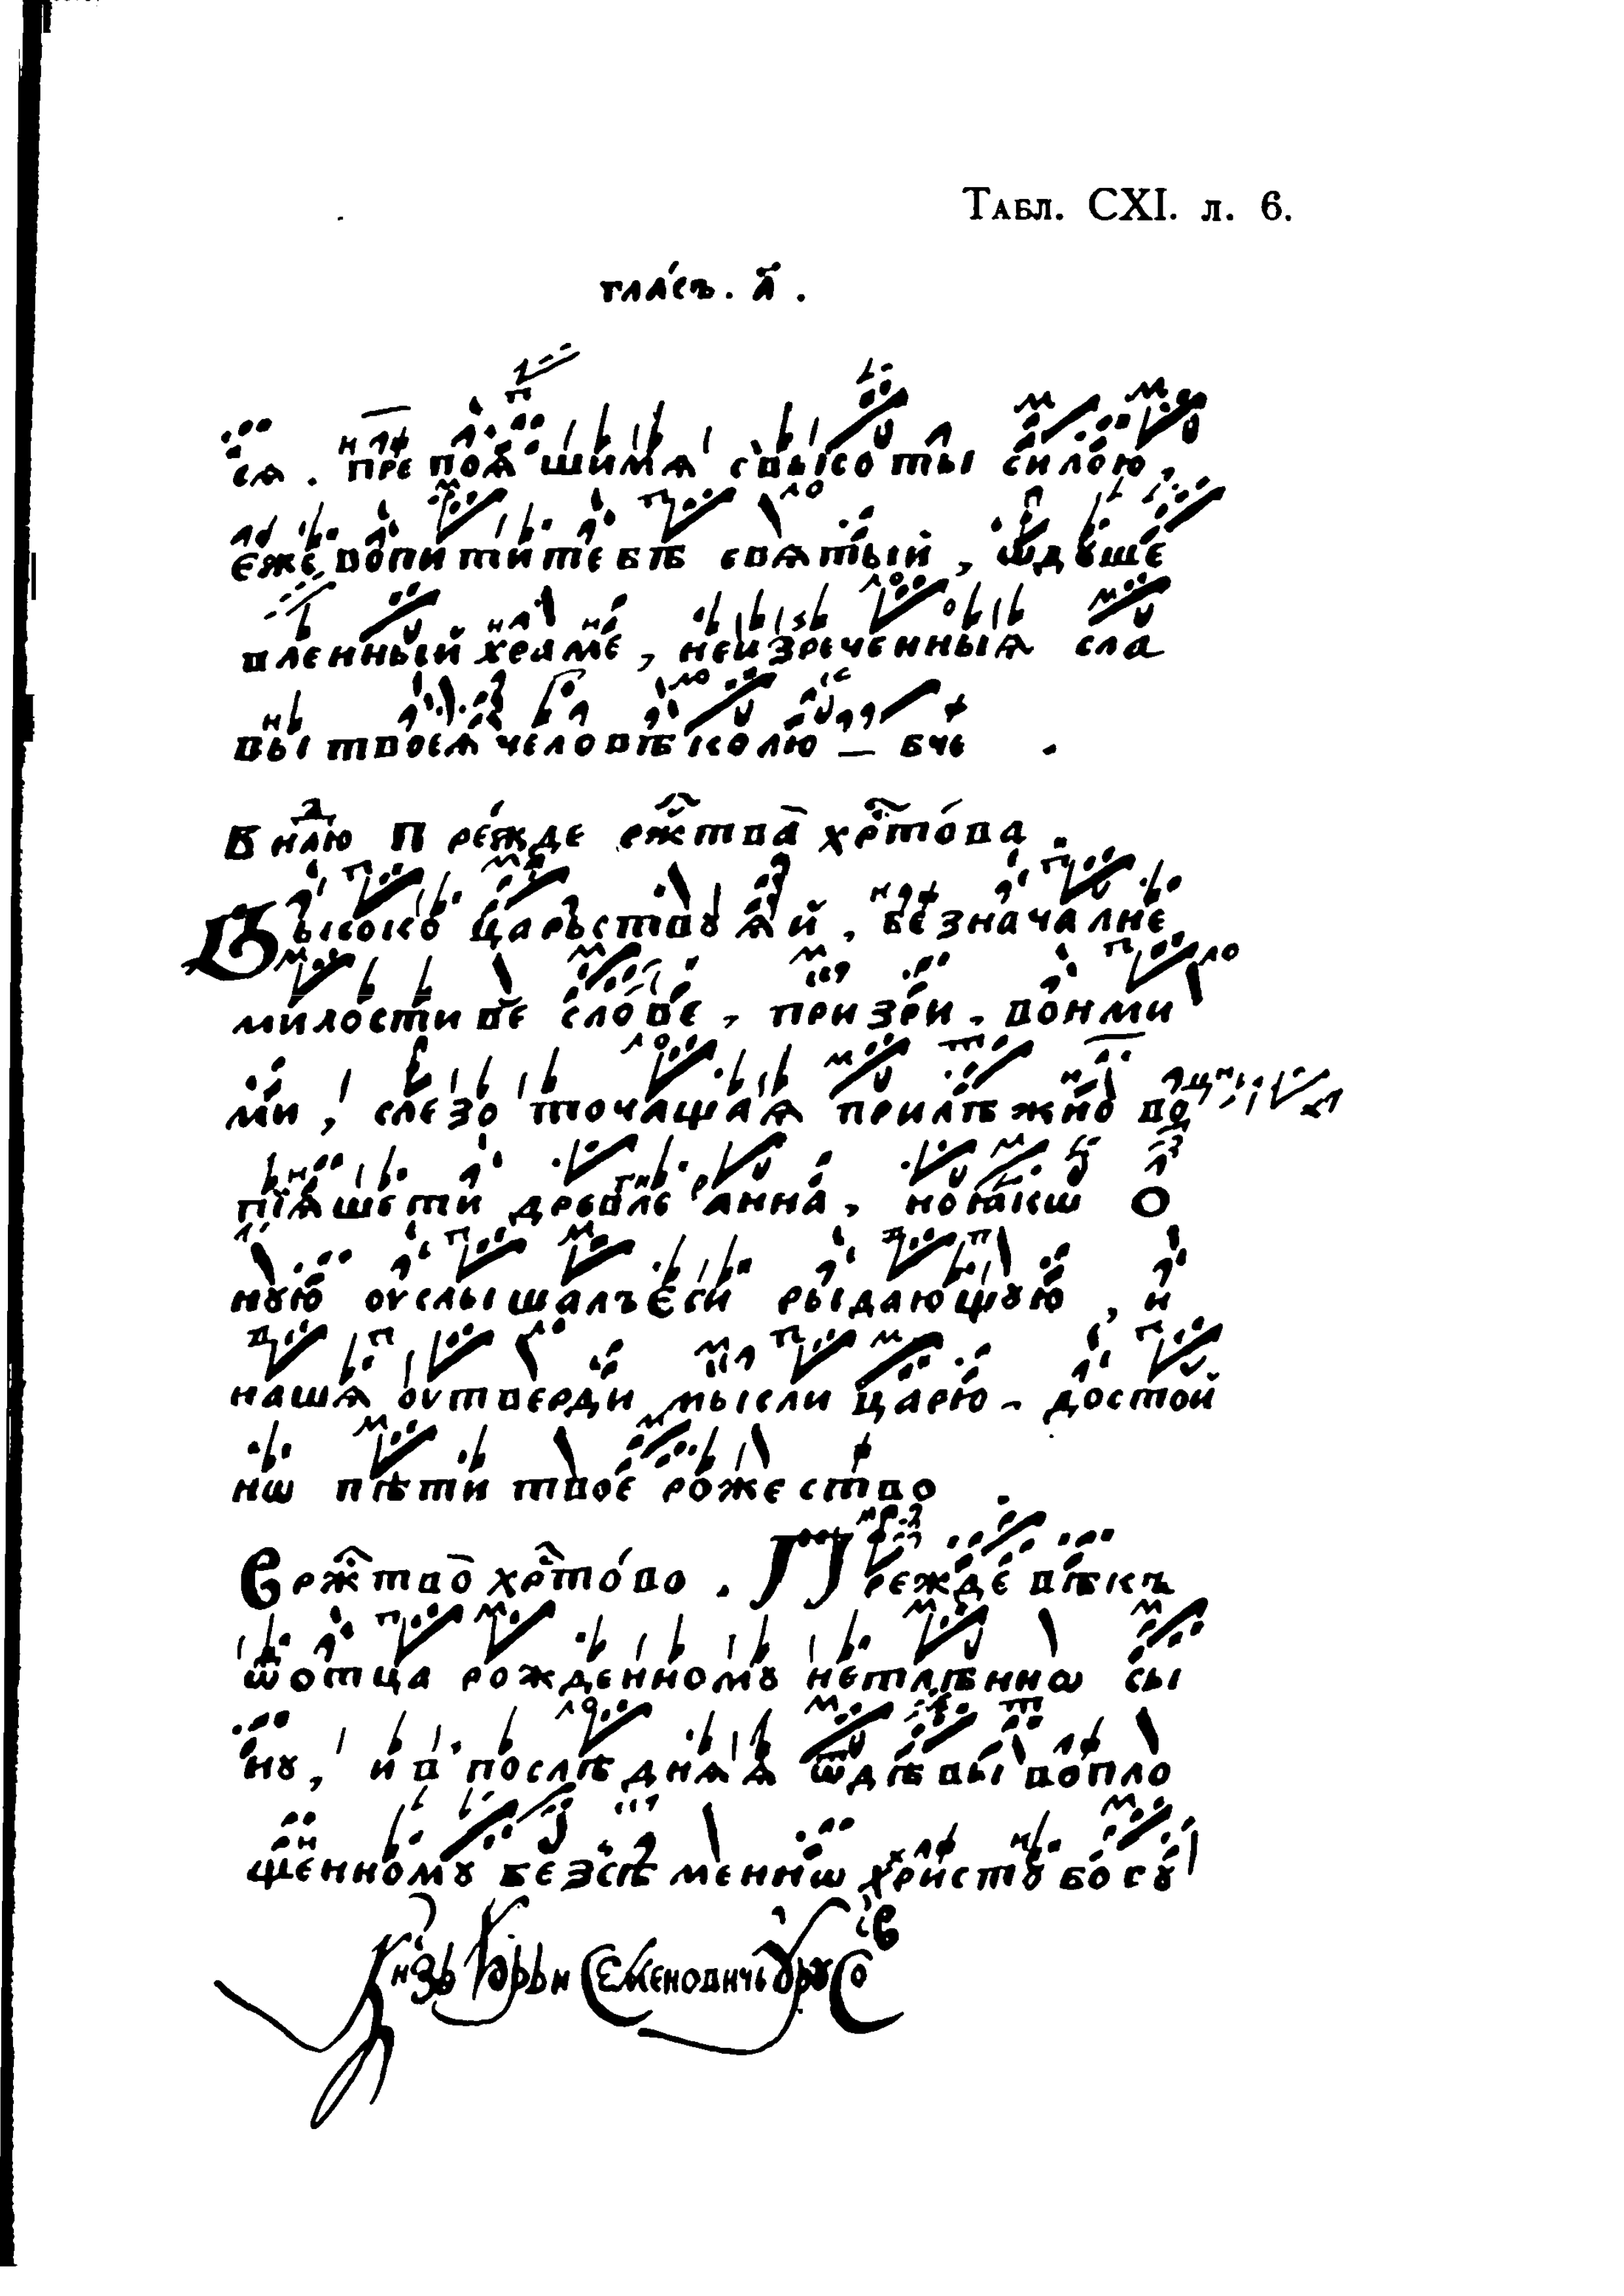 Табл. CXI. л. 6.
гла́съ. а҃ .
сѧ . препоѧ́шимѧ свысоты си́лою,
є́же вопити́тебѣ свѧты́й , ѿдꙋше
вленный хра́ме́ , неизрече́нныѧ сла
вы твоеѧ человѣколю — бче .
В н҃дѣлю Пре́жде рж҃тва̀ хр҃то́ва .
Высоко́ ца́рьствꙋѧй , безнача́лне,
ми́лостиве сло́ве , призри . во́нми
ми , сле́зо точа́щаѧ прилѣ́жно во
пїѧ́шети дре́вле а́нна́ , но ꙗ́кѡ о
нꙋю оуслы́шалъєси́ рыда́ющꙋю , и
на́шѧ оутверди мы́сли царю̀ - досто́й
нѡ пѣти твоѐ рожество .
В рж҃тво хр҃то́во . Пре́жде вѣкъ
ѿ отца рожде́нномꙋ нетлѣ́ннѡ сы
нꙋ , и в послѣ́днѧѧ ѿ дѣвы вопло
ще́нномꙋ безсѣ́меннѡ христꙋ̀ богꙋ̀
Кнзь Юрьи Семеновичь Урусов